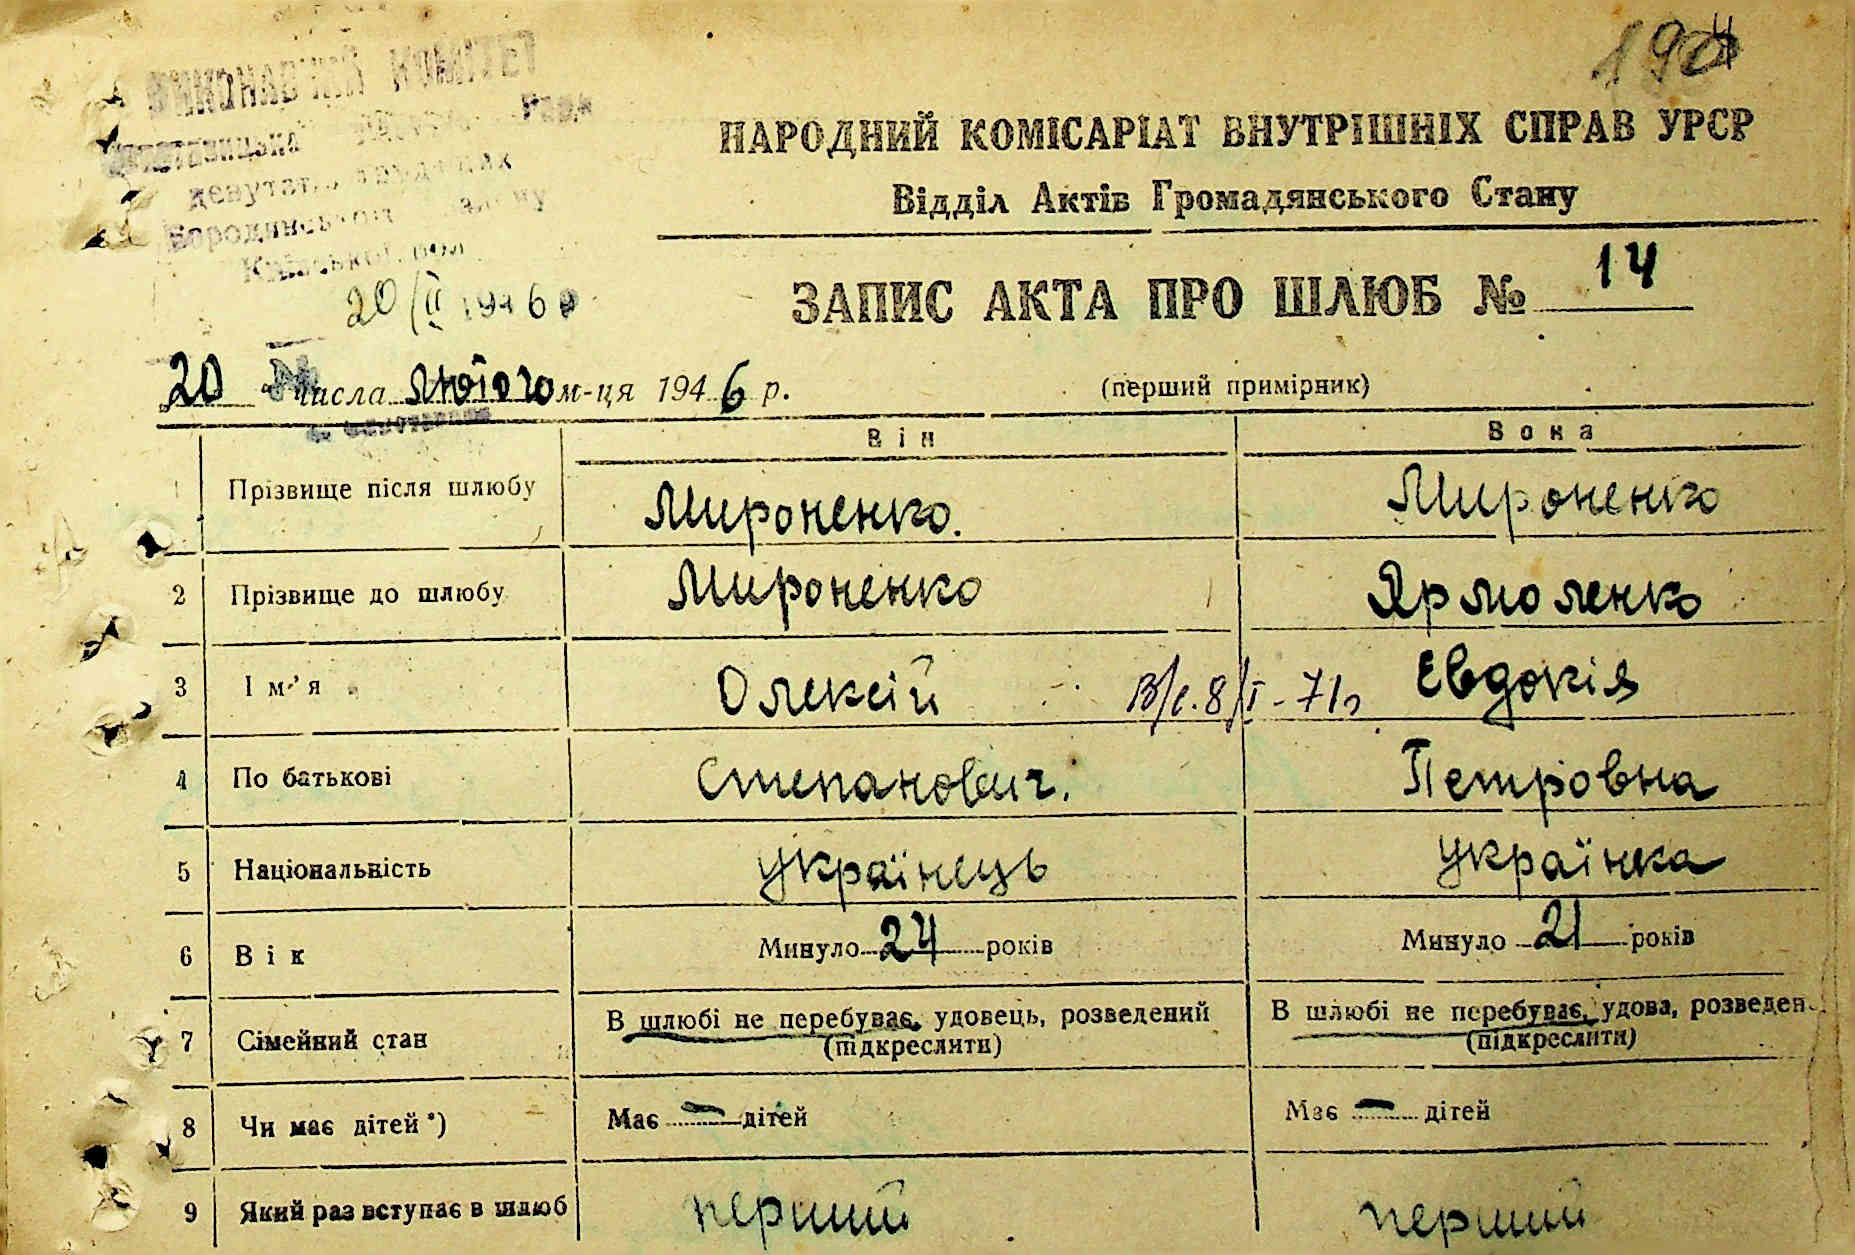 194
ВИКОНАВЧИЙ КОМІТЕТ
Рада
депутатів трудящих
Бородянського району
Київської обл.
20/II 1946 р
НАРОДНИЙ КОМІСАРІАТ ВНУТРІШНІХ СПРАВ УРСР
Відділ Актів Громадянського Стану
ЗАПИС АКТА ПРО ШЛЮБ № 14
20 числа лютого м-ця 1946 р.
(перший примірник)
Він Вона
1 Прізвище після шлюбу Мироненко. Мироненко
2 Прізвище до шлюбу Мироненко Ярмоленко
3 Ім'я Олексій В/с. 8/I - 71р Евдокія
4 По батькові Степанович. Петровна
5 Національність українець українка
6 Вік Минуло 24 років Минуло 21 років
7 Сімейний стан В шлюбі не перебуває, удовець, розведений В шлюбі не перебуває, удова, розведен
(підкреслити) (підкреслити)
8 Чи має дітей *) Має — дітей Має — дітей
9 Який раз вступає в шлюб перший перший